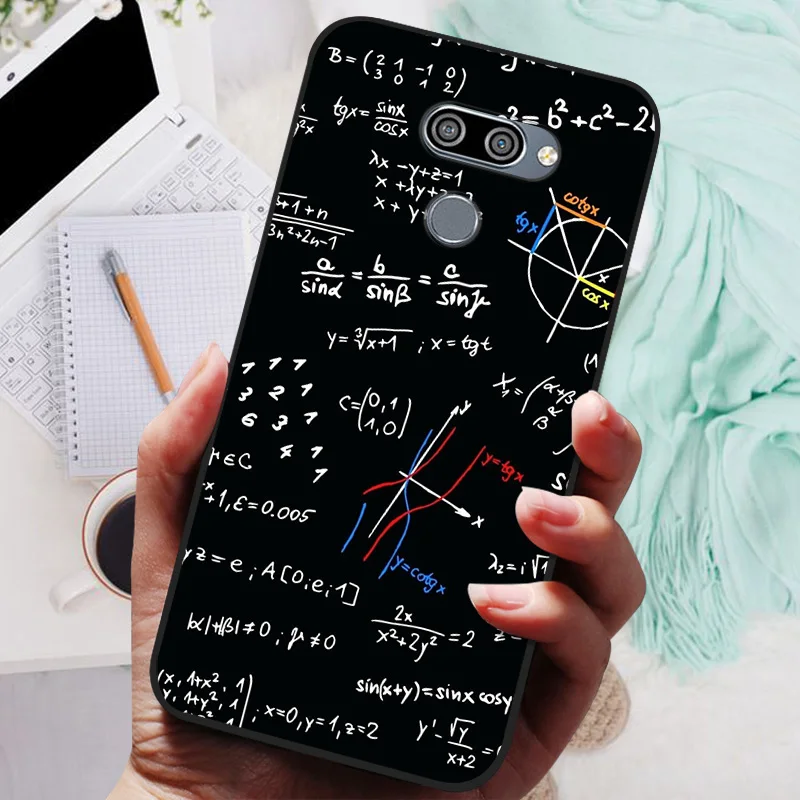 B = (2 1 -1 0
3 0 1 2)
tgx = sinx/cosx
² = b² + c² - 2
λx - y + z = 1
x + λy +
x + y
cotgx
tgx
x
cosx
+1+n
3n²+2n-1
a/sinα = b/sinβ = c/sinγ
y = ∛x+1 ; x = tgt
1 1 1
3 2 1
6 3 1
4 1
1
C = (0,1
1,0)
X₁ = (α+β
β
y
y=tgx
x
y=cotgx
∈C
+1, ε=0.005
yz = e ; A[0;e;1]
λ₂ = i√1
|α|+|β| ≠ 0 ; γ ≠ 0
2x/x²+2y² = 2
x, 1+x², 1
y, 1+y², 1
; x=0, y=1, z=2
sin(x+y) = sinx cosy
y' - √y/x+2 =